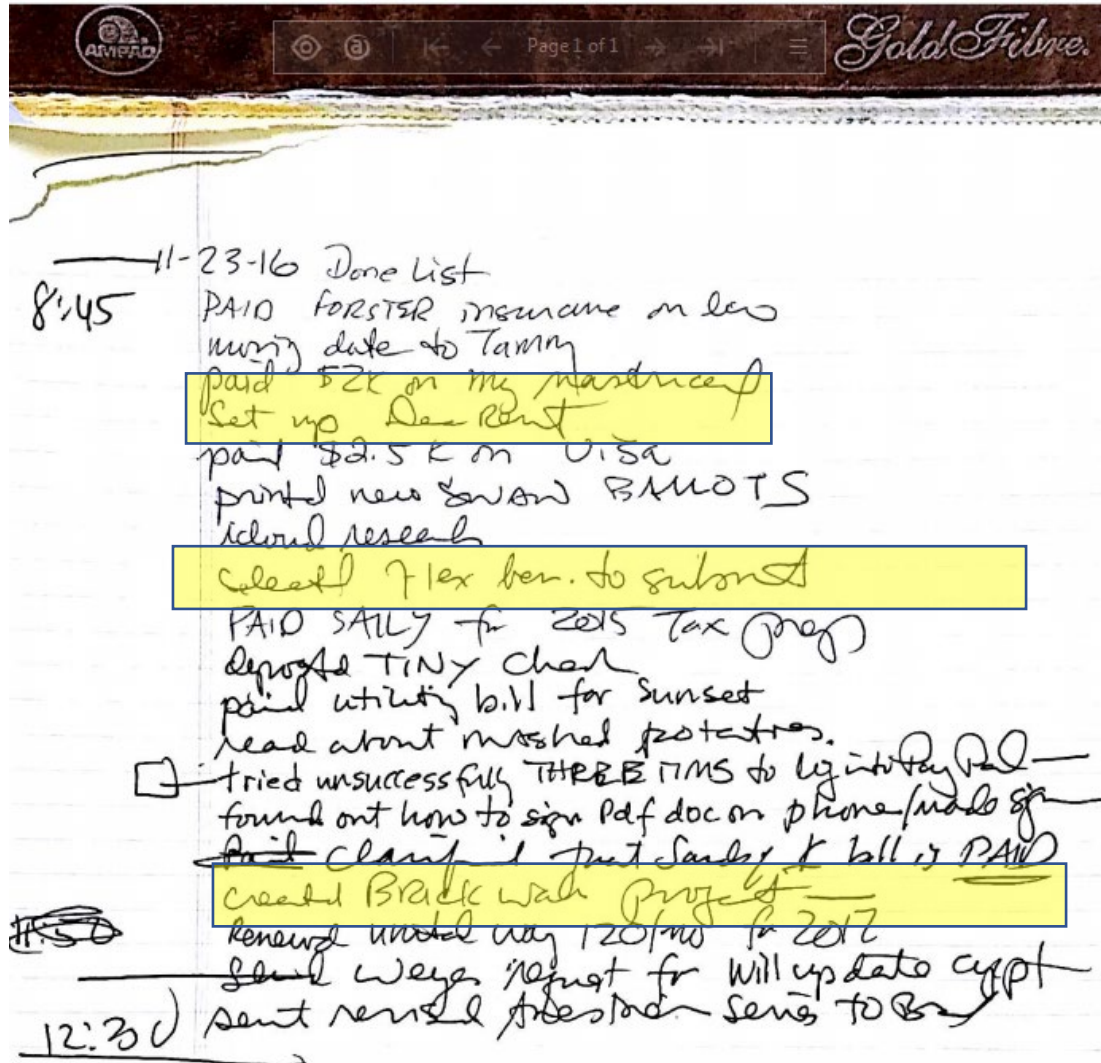 AMPAD
Page 1 of 1
Gold Fibre.
11-23-16 Done List
8:45
PAID FORSTER insurance on
date to Tammy
paid $2k on my
Set up Rent
paid $2.5K on Visa
printed new BALLOTS
icloud research
Flex ben. to submit
PAID SALLY for 2015 Tax prep
TINY check
paid utility bill for Sunset
read about mashed potatoes.
tried unsuccessfully THREE TIMS to log into Pay Pal
found out how to sign Pdf doc on phone/made sign
that bill is PAID
created Brick project
11:50
Renewed united way 120/mo for 2017
request for will update
sent revised series to
12:30